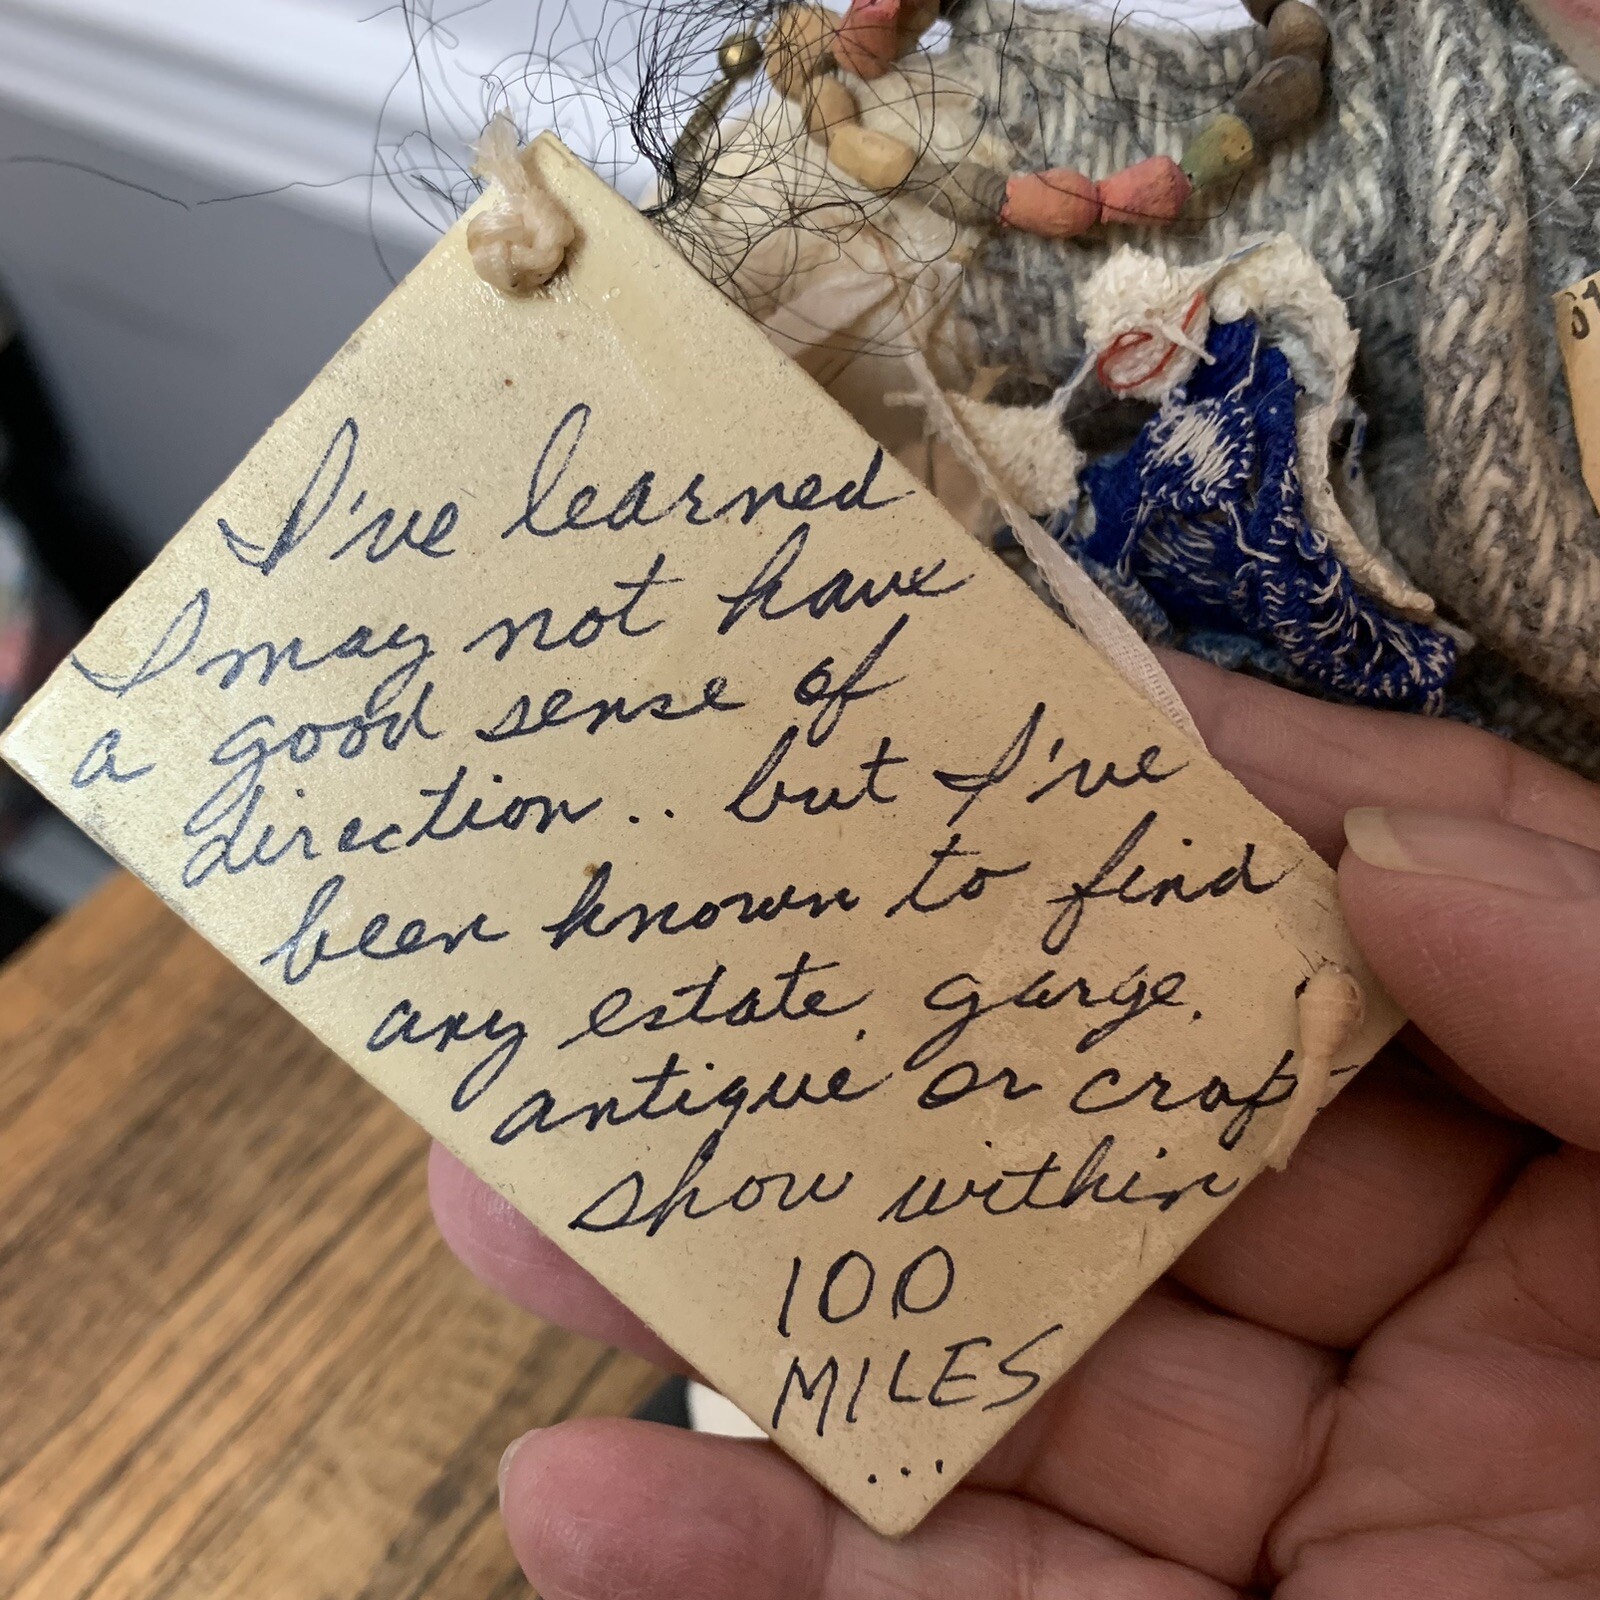 I've learned
I may not have
a good sense of
direction.. but I've
been known to find
any estate, garge,
antique or craft
show within
100
MILES
...